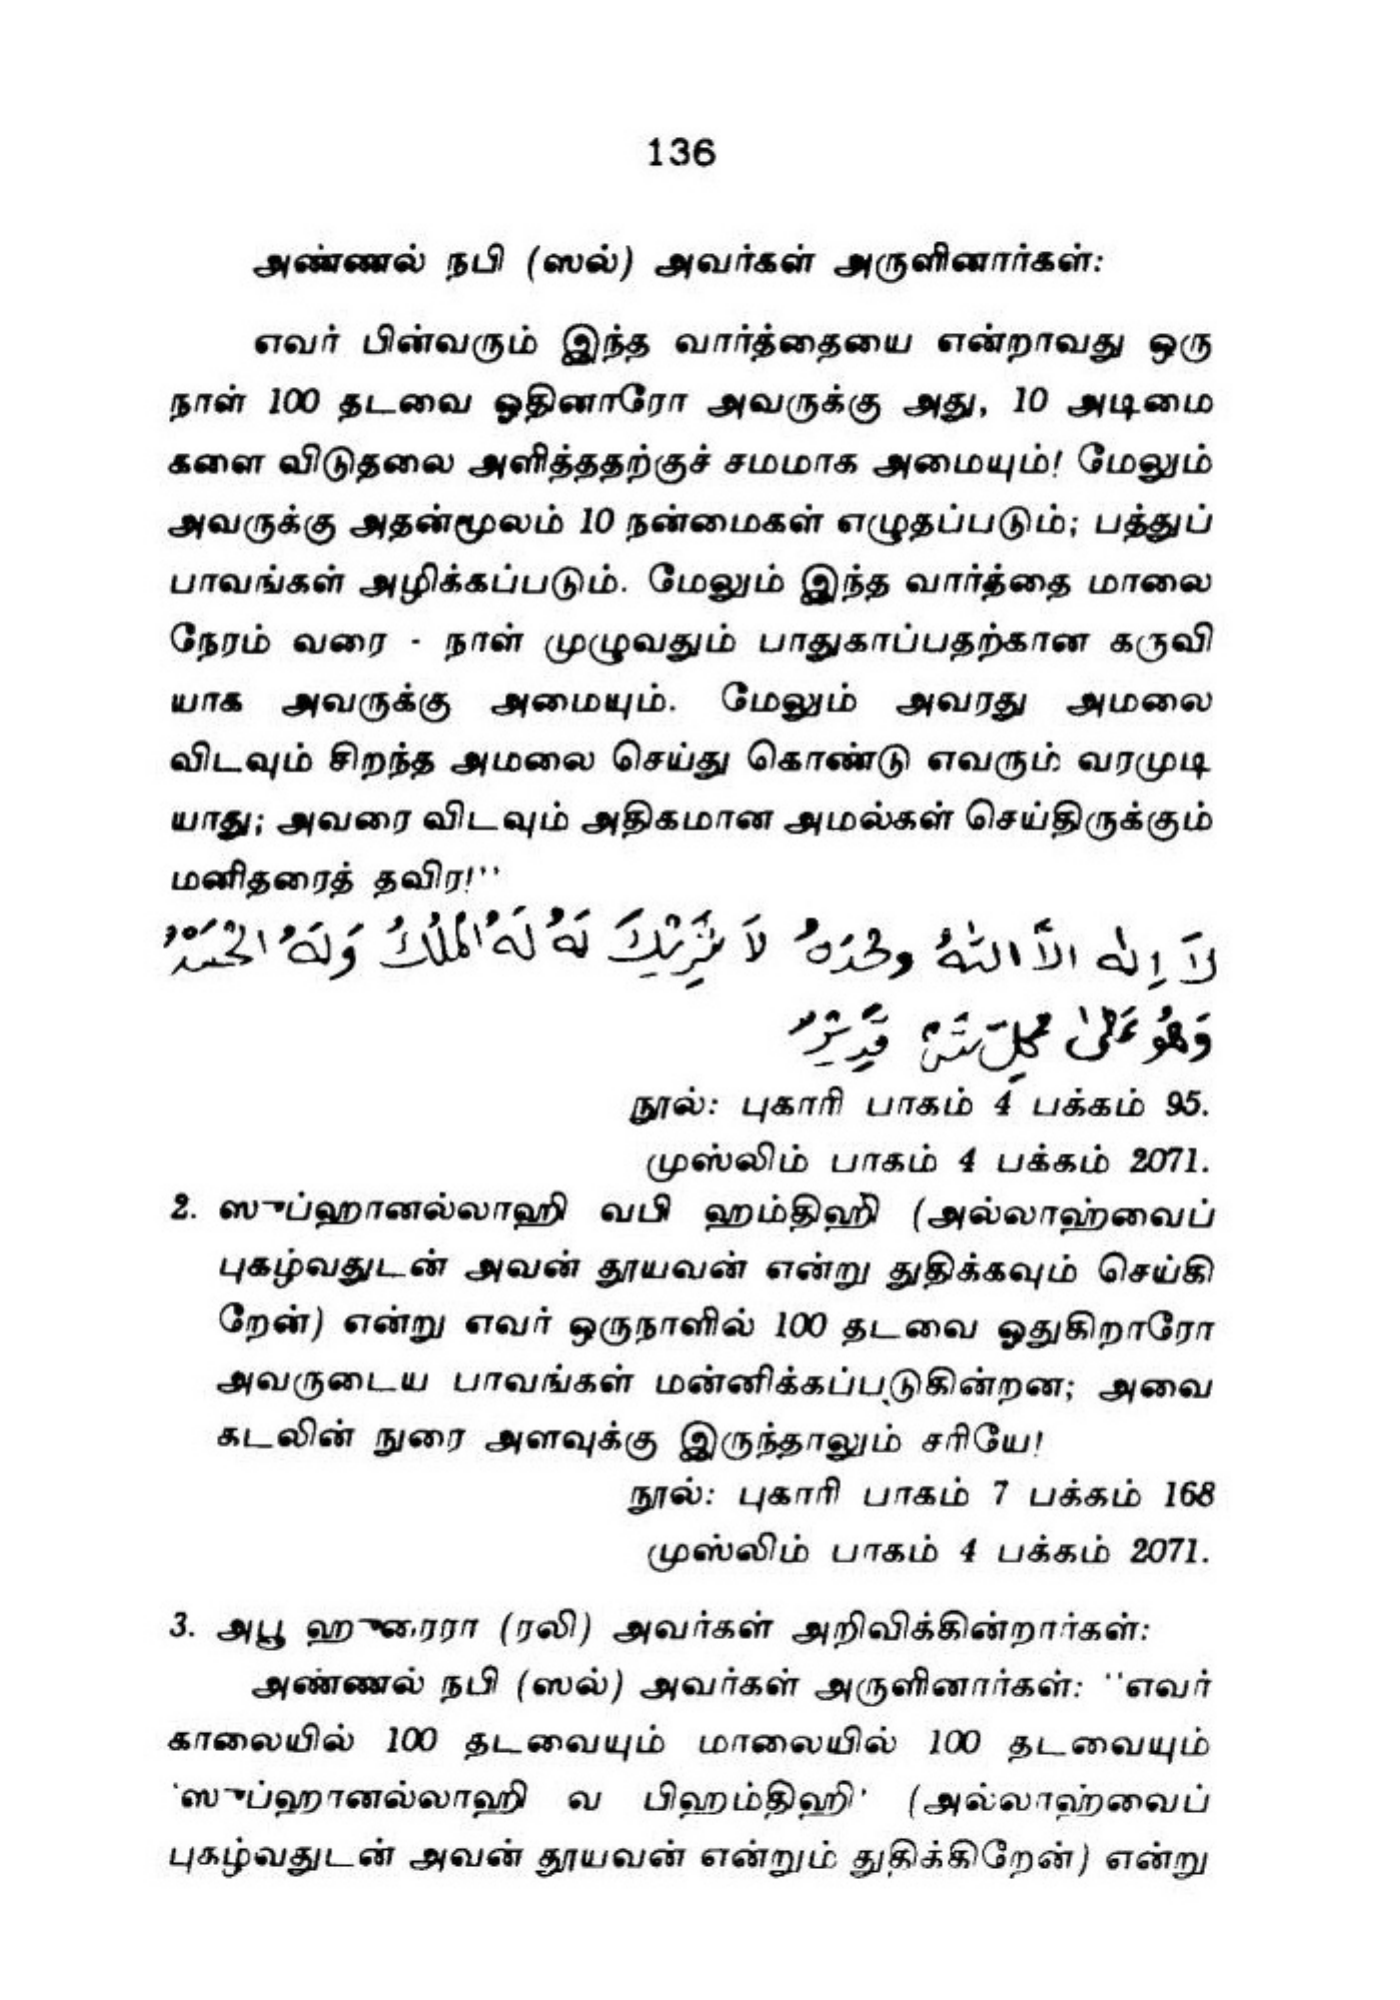 136
அண்ணல் நபி (ஸல்) அவர்கள் அருளினார்கள்:
எவர் பின்வரும் இந்த வார்த்தையை என்றாவது ஒரு
நாள் 100 தடவை ஓதினாரோ அவருக்கு அது, 10 அடிமை
களை விடுதலை அளித்ததற்குச் சமமாக அமையும்! மேலும்
அவருக்கு அதன்மூலம் 10 நன்மைகள் எழுதப்படும்; பத்துப்
பாவங்கள் அழிக்கப்படும். மேலும் இந்த வார்த்தை மாலை
நேரம் வரை - நாள் முழுவதும் பாதுகாப்பதற்கான கருவி
யாக அவருக்கு அமையும். மேலும் அவரது அமலை
விடவும் சிறந்த அமலை செய்து கொண்டு எவரும் வரமுடி
யாது; அவரை விடவும் அதிகமான அமல்கள் செய்திருக்கும்
மனிதரைத் தவிர!''
لَا إِلٰهَ إِلَّا اللّٰهُ وَحْدَهُ لَا شَرِيْكَ لَهُ لَهُ الْمُلْكُ وَلَهُ الْحَمْدُ
وَهُوَ عَلٰى كُلِّ شَيْءٍ قَدِيْرٌ
நூல்: புகாரி பாகம் 4 பக்கம் 95.
முஸ்லிம் பாகம் 4 பக்கம் 2071.
2. ஸுப்ஹானல்லாஹி வபி ஹம்திஹி (அல்லாஹ்வைப்
புகழ்வதுடன் அவன் தூயவன் என்று துதிக்கவும் செய்கி
றேன்) என்று எவர் ஒருநாளில் 100 தடவை ஓதுகிறாரோ
அவருடைய பாவங்கள் மன்னிக்கப்படுகின்றன; அவை
கடலின் நுரை அளவுக்கு இருந்தாலும் சரியே!
நூல்: புகாரி பாகம் 7 பக்கம் 168
முஸ்லிம் பாகம் 4 பக்கம் 2071.
3. அபூ ஹுரைரா (ரலி) அவர்கள் அறிவிக்கின்றார்கள்:
அண்ணல் நபி (ஸல்) அவர்கள் அருளினார்கள்: ''எவர்
காலையில் 100 தடவையும் மாலையில் 100 தடவையும்
'ஸுப்ஹானல்லாஹி வ பிஹம்திஹி' (அல்லாஹ்வைப்
புகழ்வதுடன் அவன் தூயவன் என்றும் துதிக்கிறேன்) என்று